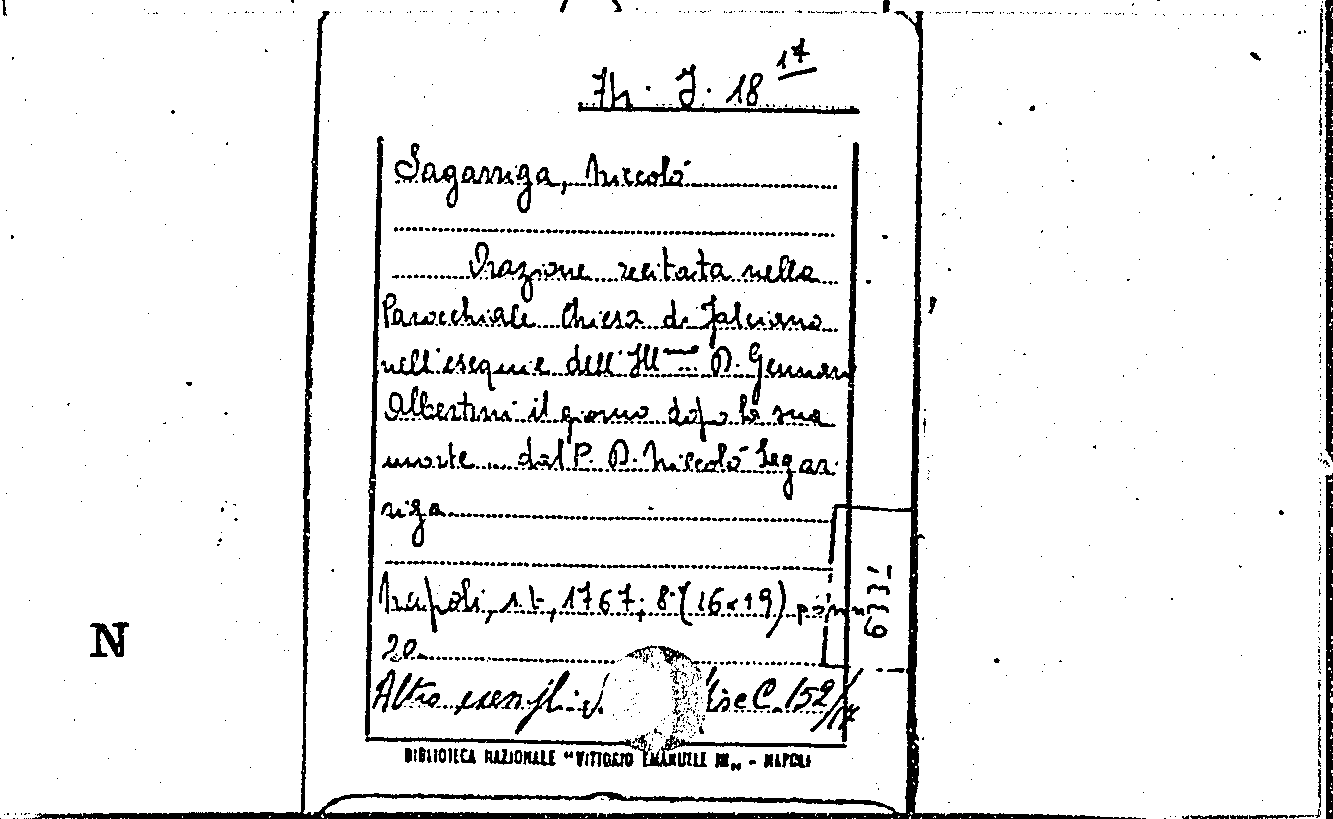 Th. J. 18 17
Sagarriga, Niccolò
Orazione recitata nella
Parocchiale Chiesa di Falciano
nell'esequie dell'Ill D. Gennaro
Albertini il giorno dopo la sua
morte dal P. D. Niccolò Segar
riga
Napoli, s. t., 1767; 8° (16x19)
20
Altro esempl. Misc C. 152/17
6337
N
BIBLIOTECA NAZIONALE "VITTORIO EMANUELE III„ - NAPOLI